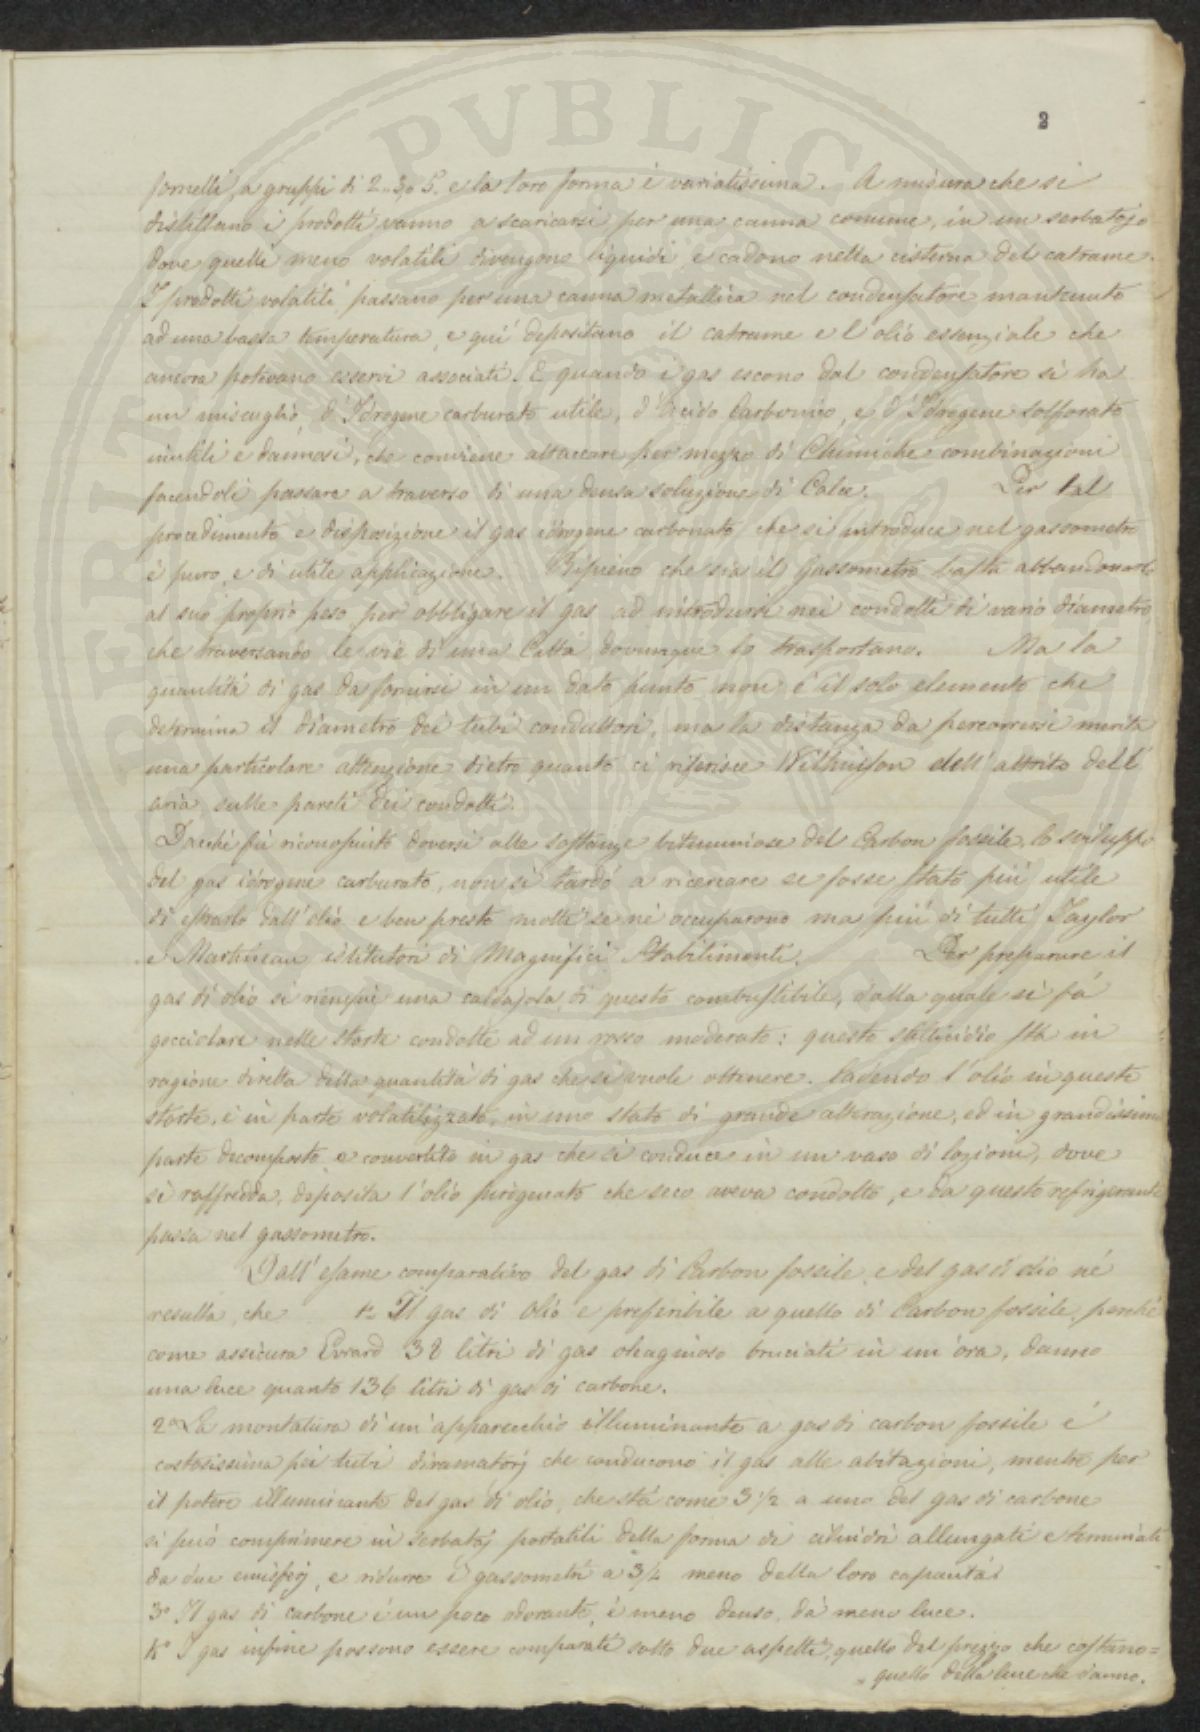 2
fornelli, a gruppi di 2. 3, o 5. e la loro forma è variatissima. A misura che si
distillano i prodotti vanno a scaricarsi per una canna comune, in un serbatojo
dove quelli meno volatili divengono liquidi e cadono nella cisterna del catrame.
I prodotti volatili passano per una canna metallica nel condensatore mantenuto
ad una bassa temperatura, e quì depositano il catrame e l'olio essenziale che
ancora potevano esservi associati. E quando i gas escono dal condensatore si ha
un miscuglio, d'Idrogene carburato utile, d'acido Carbonico, e d'Idrogene solforato
inutili e dannosi, che conviene attaccare per mezzo di Chimiche combinazioni
facendoli passare a traverso di una densa soluzione di Calce. Per tal
procedimento e disposizione il gas idrogene carbonato che si introduce nel gassometro
è puro, e di utile applicazione. Ripieno che sia il Gassometro basta abbandonarlo
al suo proprio peso per obbligare il gas ad introdursi nei condotti di vario diametro
che traversando le vie di una Città dovunque lo trasportano. Ma la
quantità di gas da fornirsi in un dato punto non è il solo elemento che
determina il diametro dei tubi conduttori, ma la distanza da percorrersi merita
una particolare attenzione dietro quanto ci riferisce dell'attrito dell'
aria sulle pareti dei condotti.
Dacchè fù riconosciuto doversi alle sostanze bituminose del Carbon fossile, lo sviluppo
del gas idrogene carburato, non si tardò a ricercare se fosse stato più utile
di estrarlo dall'olio e ben presto molti se ne occuparono ma più di tutti Taylor
e Martineau istitutori di Magnifici Stabilimenti. Per preparare il
gas di olio si riempie una caldajola di questo combustibile, dalla quale si fà
gocciolare nelle storte condotte ad un rosso moderato: questo stillicidio stà in
ragione diretta della quantità di gas che si vuole ottenere. Cadendo l'olio in queste
storte, è in parte volatilizzato, in uno stato di grande alterazione, ed in grandissima
parte decomposto e convertito in gas che si conduce in un vaso di lozioni, dove
si raffredda, deposita l'olio pirogenato che seco aveva condotto, e da questo refrigerante
passa nel gassometro.
Dall'esame comparativo del gas di Carbon fossile, e del gas di olio né
resulta, che 1° Il gas di Olio è preferibile a quello di Carbon fossile, perchè
come assicura Evrard 38 litri di gas oleaginoso bruciati in un'óra, danno
una luce quanto 136 litri di gas di carbone.
2° La montatura di un'apparecchio illuminante a gas di carbon fossile è
costosissima pei tubi diramatorj che conducono il gas alle abitazioni, mentre per
il potere illuminante del gas di olio, che stà come 3 1/2 a uno del gas di carbone
si può comprimere in serbatoj portatili della forma di cilindri allungati e terminati
da due emisferj, e ridurre i gassometri a 3/4 meno della loro capacità.
3° Il gas di carbone è un poco odorante, è meno denso, dà meno luce.
4° I gas infine possono essere comparati sotto due aspetti, quello del prezzo che costano=
= quello della luce che danno.